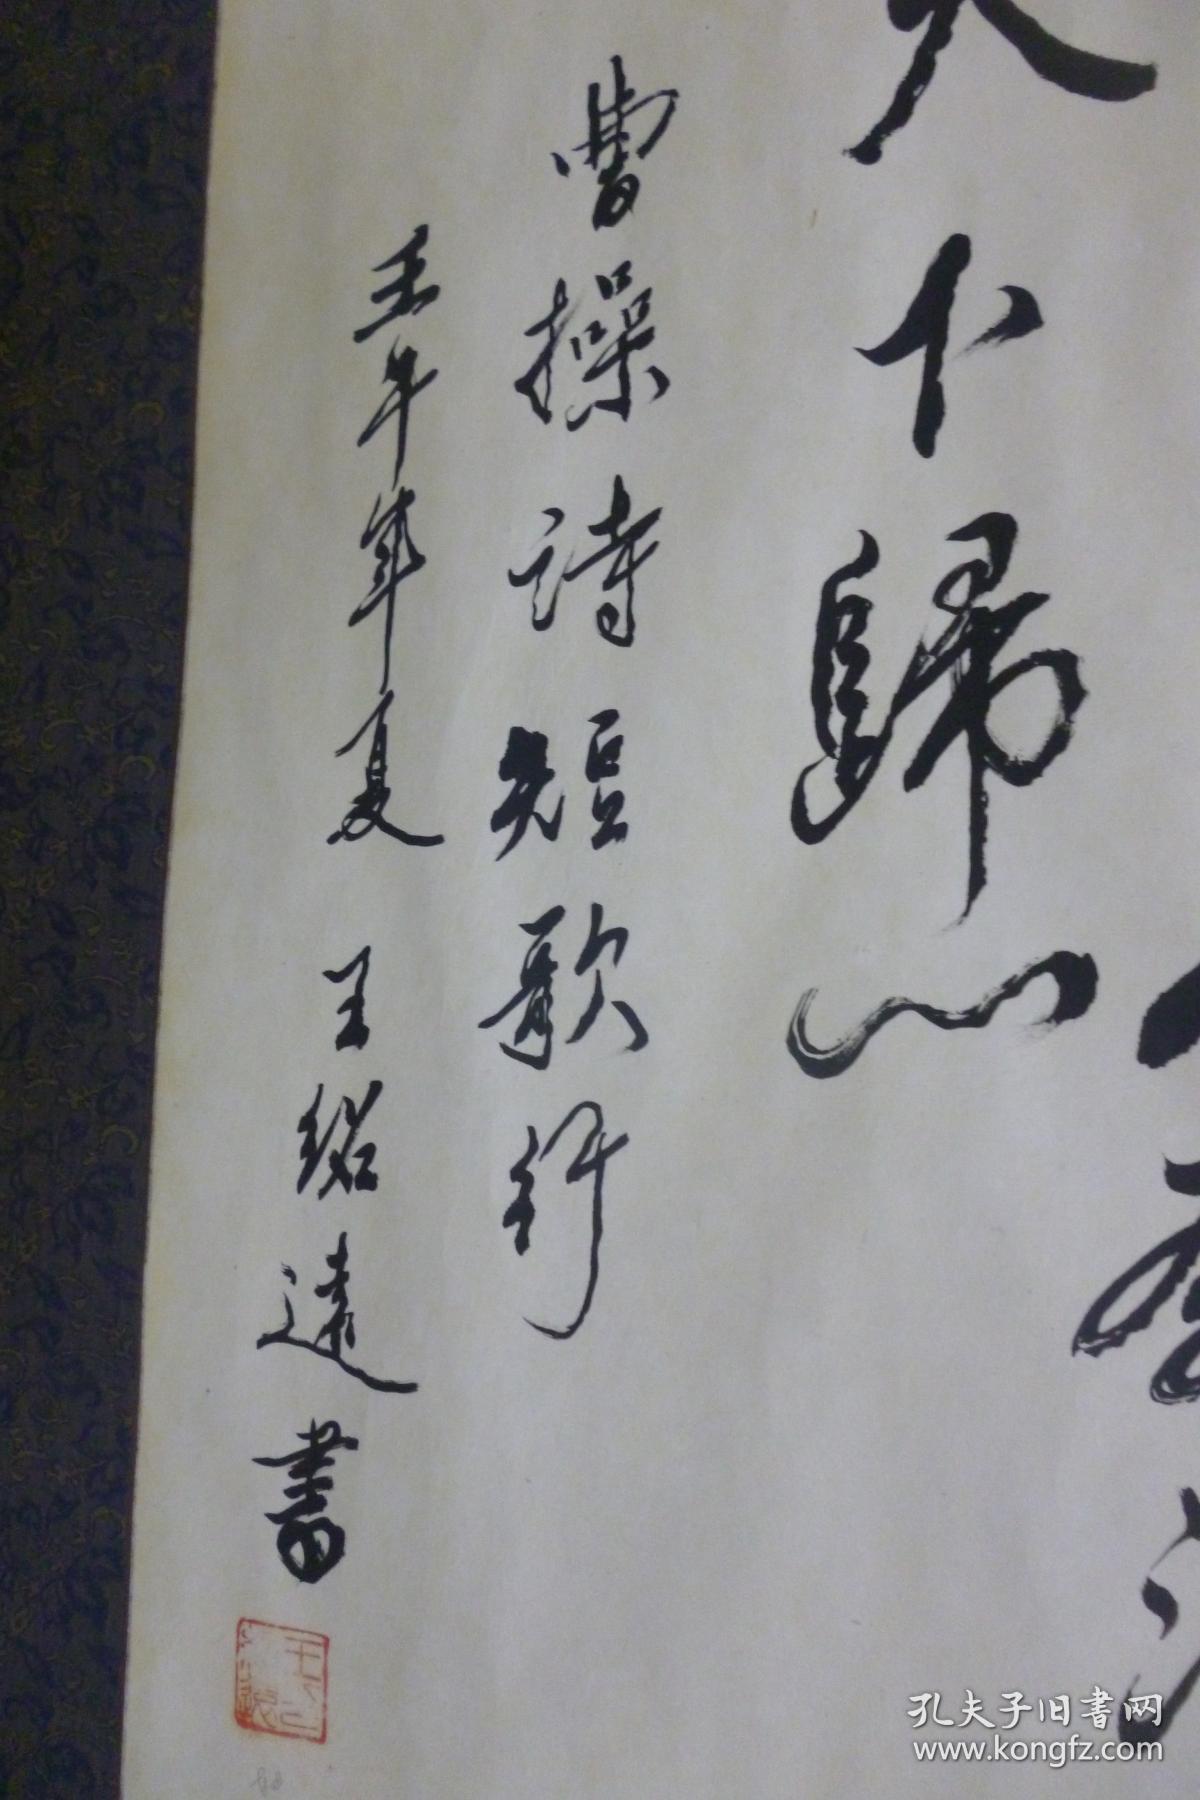 天下歸心
曹操詩短歌行
壬午年夏 王紹遠書
孔夫子旧书网
www.kongfz.com